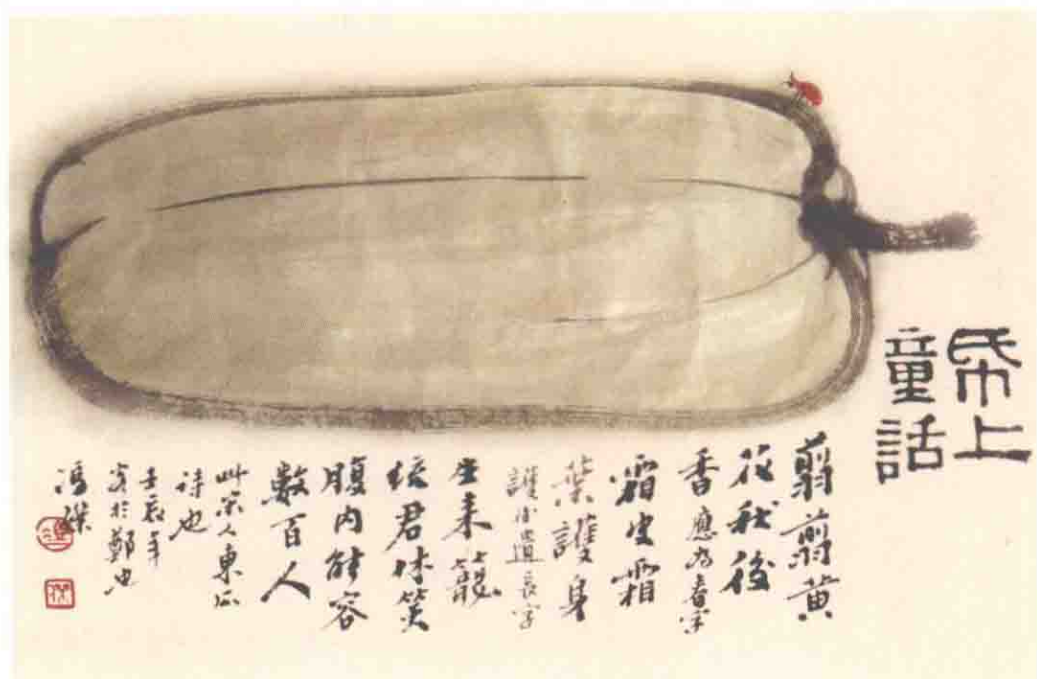 帋上
童話
翦翦黄
花秋後
香應为春字
霜皮霜
葉護身
護後遺長字
生来籠
統君休笑
腹内能容
數百人
此宋人東瓜
詩也
壬辰年
客於鄭也
馮傑